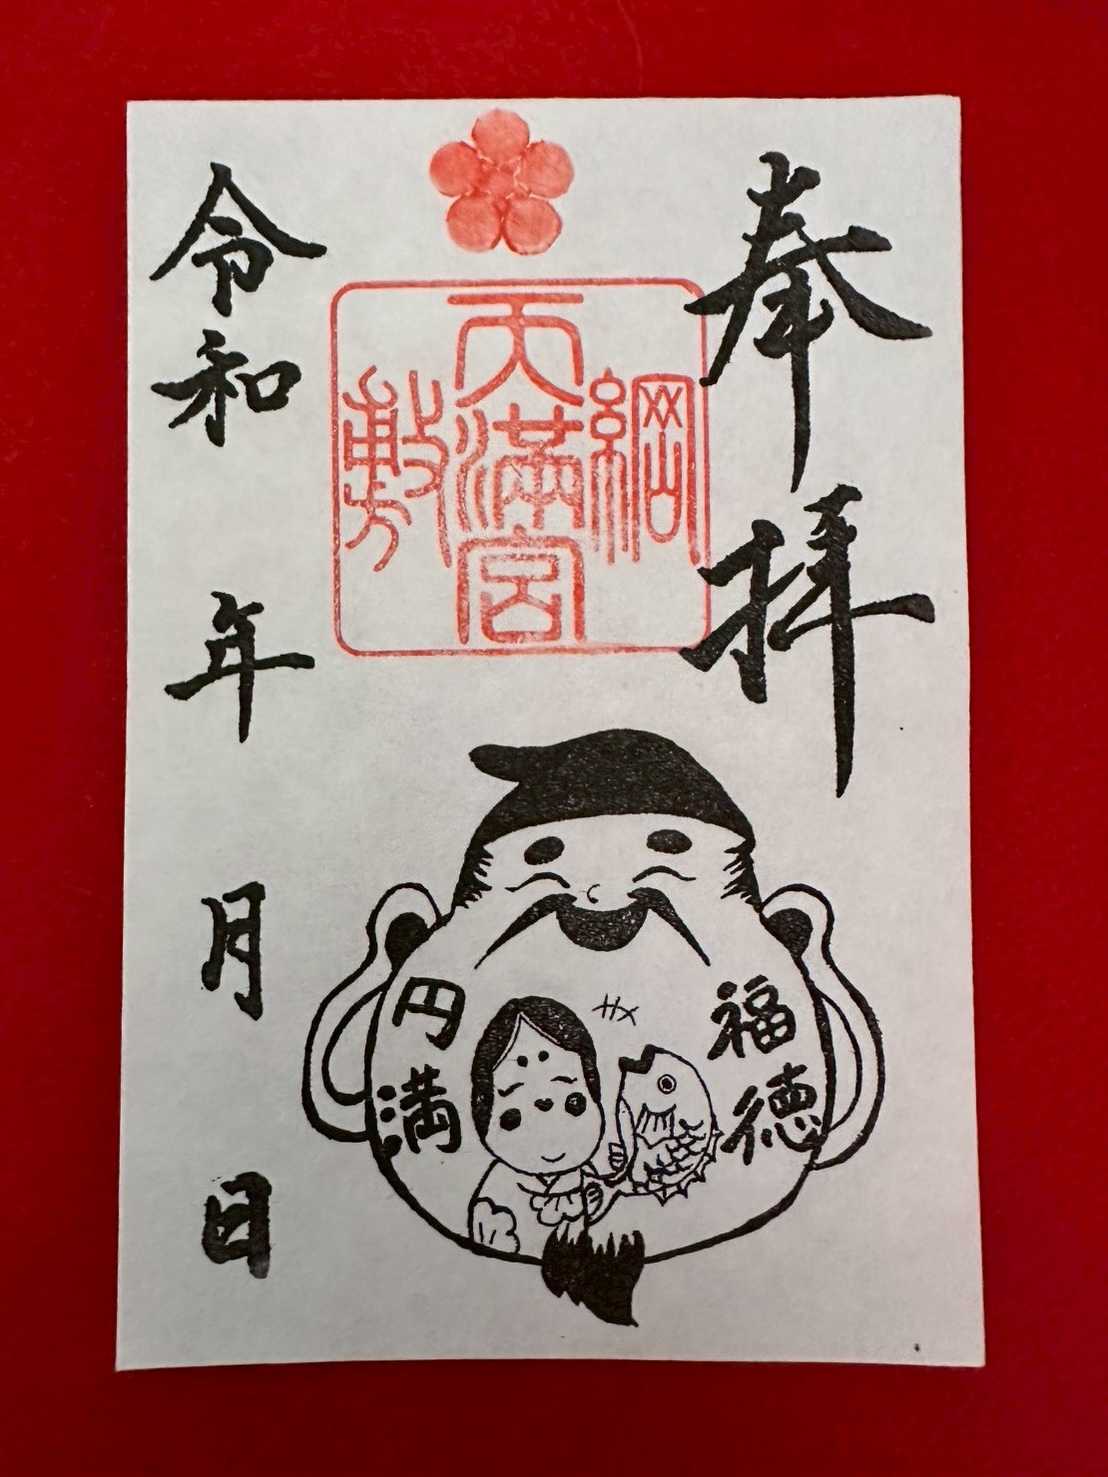 奉拝
綱
天満宮
敷
福徳
円満
令和 年 月 日